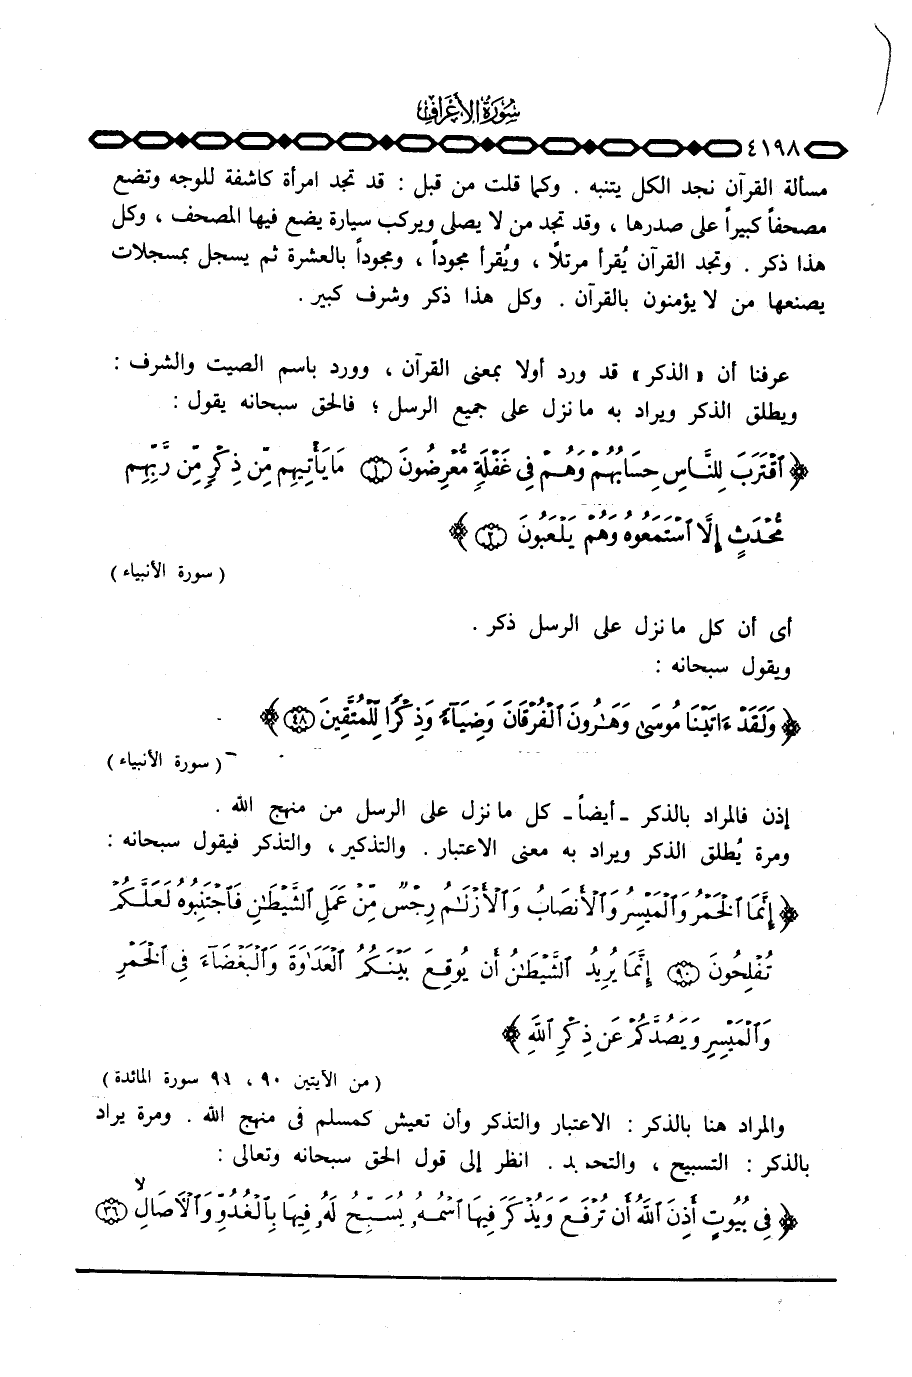 سُورَةُ الأَعْرَافِ
٤١٩٨
مسألة القرآن نجد الكل يتنبه . وكما قلت من قبل : قد تجد امرأة كاشفة للوجه وتضع
مصحفاً كبيراً على صدرها ، وقد تجد من لا يصلى ويركب سيارة يضع فيها المصحف ، وكل
هذا ذكر . وتجد القرآن يُقرأ مرتلاً ، ويُقرأ مجوداً ، ومجوداً بالعشرة ثم يسجل بمسجلات
يصنعها من لا يؤمنون بالقرآن . وكل هذا ذكر وشرف كبير .
عرفنا أن « الذكر » قد ورد أولا بمعنى القرآن ، وورد باسم الصيت والشرف :
ويطلق الذكر ويراد به ما نزل على جميع الرسل ؛ فالحق سبحانه يقول :
﴿ ٱقْتَرَبَ لِلنَّاسِ حِسَابُهُمْ وَهُمْ فِى غَفْلَةٍ مُّعْرِضُونَ ۝١ مَا يَأْتِيهِم مِّن ذِكْرٍ مِّن رَّبِّهِم
مُّحْدَثٍ إِلَّا ٱسْتَمَعُوهُ وَهُمْ يَلْعَبُونَ ۝٢ ﴾
( سورة الأنبياء )
أى أن كل ما نزل على الرسل ذكر .
ويقول سبحانه :
﴿ وَلَقَدْ ءَاتَيْنَا مُوسَىٰ وَهَٰرُونَ ٱلْفُرْقَانَ وَضِيَآءً وَذِكْرًا لِّلْمُتَّقِينَ ۝٤٨ ﴾
( سورة الأنبياء )
إذن فالمراد بالذكر ـ أيضاً ـ كل ما نزل على الرسل من منهج الله .
ومرة يُطلق الذكر ويراد به معنى الاعتبار . والتذكير ، والتذكر فيقول سبحانه :
﴿ إِنَّمَا ٱلْخَمْرُ وَٱلْمَيْسِرُ وَٱلْأَنصَابُ وَٱلْأَزْلَٰمُ رِجْسٌ مِّنْ عَمَلِ ٱلشَّيْطَٰنِ فَٱجْتَنِبُوهُ لَعَلَّكُمْ
تُفْلِحُونَ ۝٩٠ إِنَّمَا يُرِيدُ ٱلشَّيْطَٰنُ أَن يُوقِعَ بَيْنَكُمُ ٱلْعَدَٰوَةَ وَٱلْبَغْضَآءَ فِى ٱلْخَمْرِ
وَٱلْمَيْسِرِ وَيَصُدَّكُمْ عَن ذِكْرِ ٱللَّهِ ﴾
( من الآيتين ٩٠ ، ٩١ سورة المائدة )
والمراد هنا بالذكر : الاعتبار والتذكر وأن تعيش كمسلم فى منهج الله . ومرة يراد
بالذكر : التسبيح ، والتحميد . انظر إلى قول الحق سبحانه وتعالى :
﴿ فِى بُيُوتٍ أَذِنَ ٱللَّهُ أَن تُرْفَعَ وَيُذْكَرَ فِيهَا ٱسْمُهُۥ يُسَبِّحُ لَهُۥ فِيهَا بِٱلْغُدُوِّ وَٱلْءَاصَالِ ۝٣٦